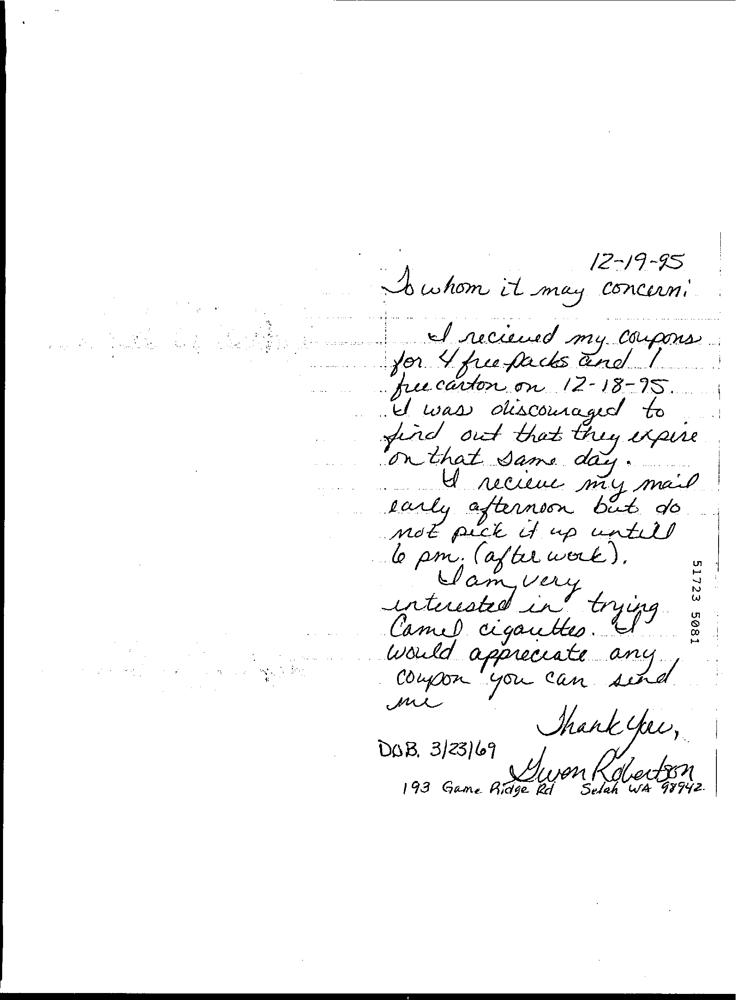 12-19-95
To whom it may concern:
I recieved my coupons
for 4 free packs and 1
free carton on 12-18-95.
I was discouraged to
find out that they expire
on that same day.
I recieve my mail
early afternoon but do
not pick it up untill
6 pm. (after work).
I am very
interested in trying
Camel cigarettes. I
would appreciate any
coupon you can send
me
Thank you,
D.O.B. 3/23/69
Gwen Robertson
193 Game Ridge Rd Selah WA 98942.
51723 5081